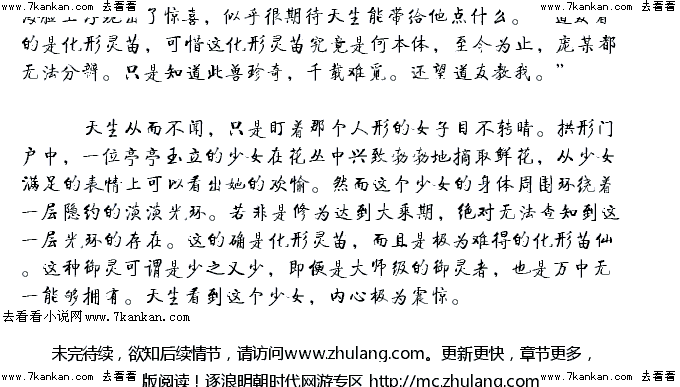 海脸上浮现出了惊喜，似乎很期待天生能带给他点什么。“道友看
的是化形灵苗，可惜这化形灵苗究竟是何本体，至今为止，庞某都
无法分辨。只是知道此兽珍奇，千载难觅。还望道友教我。”
天生从而不闻，只是盯着那个人形的女子目不转睛。拱形门
户中，一位亭亭玉立的少女在花丛中兴致勃勃地摘取鲜花，从少女
满足的表情上可以看出她的欢愉。然而这个少女的身体周围环绕着
一层隐约的淡淡光环。若非是修为达到大乘期，绝对无法查知到这
一层光环的存在。这的确是化形灵苗，而且是极为难得的化形苗仙
。这种御灵可谓是少之又少，即便是大师级的御灵者，也是万中无
一能够拥有。天生看到这个少女，内心极为震惊。
去看看小说网www.7kankan.com
未完待续，欲知后续情节，请访问www.zhulang.com。更新更快，章节更多，
www.7kankan.com 去看看 去看看
版阅读！逐浪明朝时代网游专区 http://mc.zhulang.com
www.7kankan.com 去看看